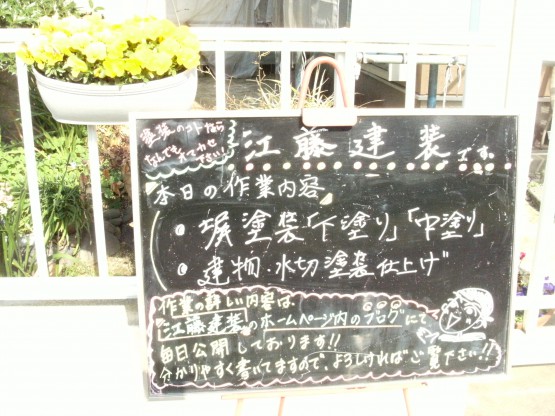 塗装のコトなら
なんでもオマカせ
下さい!
江藤建装です。
本日の作業内容
・塀塗装「下塗り」「中塗り」
・建物・水切塗装仕上げ
作業の詳しい内容は
江藤建装のホームページ内のブログにて
毎日公開しております!!
分かりやすく書いてますので、よろしければご覧下さい!!